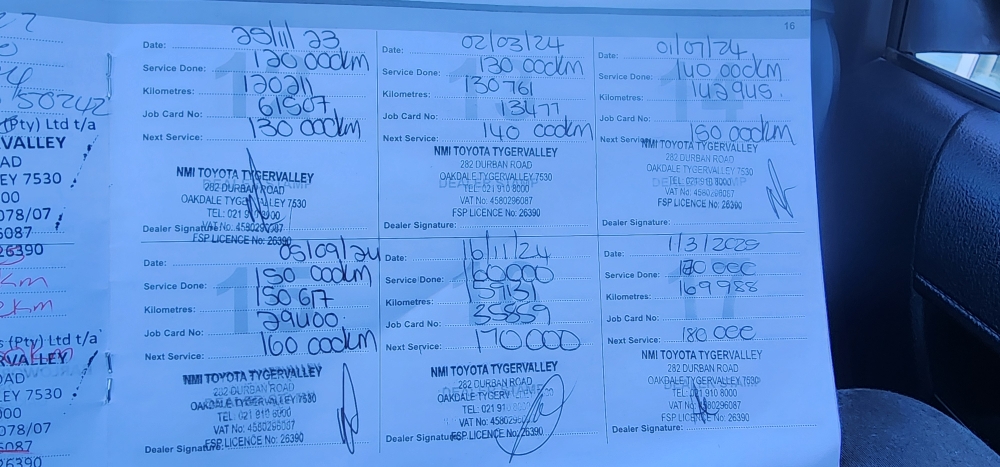 16
Date: 25/11/23
Service Done: 120 000km
Kilometres: 120211
Job Card No: 61507
Next Service: 130 000km
NMI TOYOTA TYGERVALLEY
282 DURBAN ROAD
OAKDALE TYGERVALLEY 7530
TEL: 021 910 8000
VAT No: 4580296087
Dealer Signature:
FSP LICENCE No: 26390
Date: 02/03/24
Service Done: 130 000km
Kilometres: 130761
Job Card No: 13477
Next Service: 140 000km
NMI TOYOTA TYGERVALLEY
282 DURBAN ROAD
OAKDALE TYGERVALLEY 7530
TEL: 021 910 8000
VAT No: 4580296087
FSP LICENCE No: 26390
Date: 01/07/24
Service Done: 140 000km
Kilometres: 142945
Job Card No:
Next Service: 150 000km
NMI TOYOTA TYGERVALLEY
282 DURBAN ROAD
OAKDALE TYGERVALLEY 7530
TEL: 021 910 8000
VAT No: 4580296087
FSP LICENCE No: 26390
Dealer Signature:
Date: 05/09/24
Service Done: 150 000km
Kilometres: 150617
Job Card No: 29400
Next Service: 160 000km
NMI TOYOTA TYGERVALLEY
282 DURBAN ROAD
OAKDALE TYGERVALLEY 7530
TEL: 021 910 8000
VAT No: 4580296087
FSP LICENCE No: 26390
Dealer Signature:
Date: 16/11/24
Service Done: 160000
Kilometres: 159131
Job Card No: 35859
Next Service: 170000
NMI TOYOTA TYGERVALLEY
282 DURBAN ROAD
OAKDALE TYGERV
TEL: 021 91
VAT No: 4580296087
Dealer Signature:
FSP LICENCE No: 26390
Date: 1/3/2025
Service Done: 170 000
Kilometres: 169988
Job Card No:
Next Service: 180 000
NMI TOYOTA TYGERVALLEY
282 DURBAN ROAD
OAKDALE TYGERVALLEY 7530
TEL: 021 910 8000
VAT No: 4580296087
FSP LICENCE No: 26390
Dealer Signature:
50242
(Pty) Ltd t/a
VALLEY
AD
EY 7530
00
078/07
6087
26390
km
km
s (Pty) Ltd t/a
RVALLEY
OAD
EY 7530
000
078/07
6087
26390